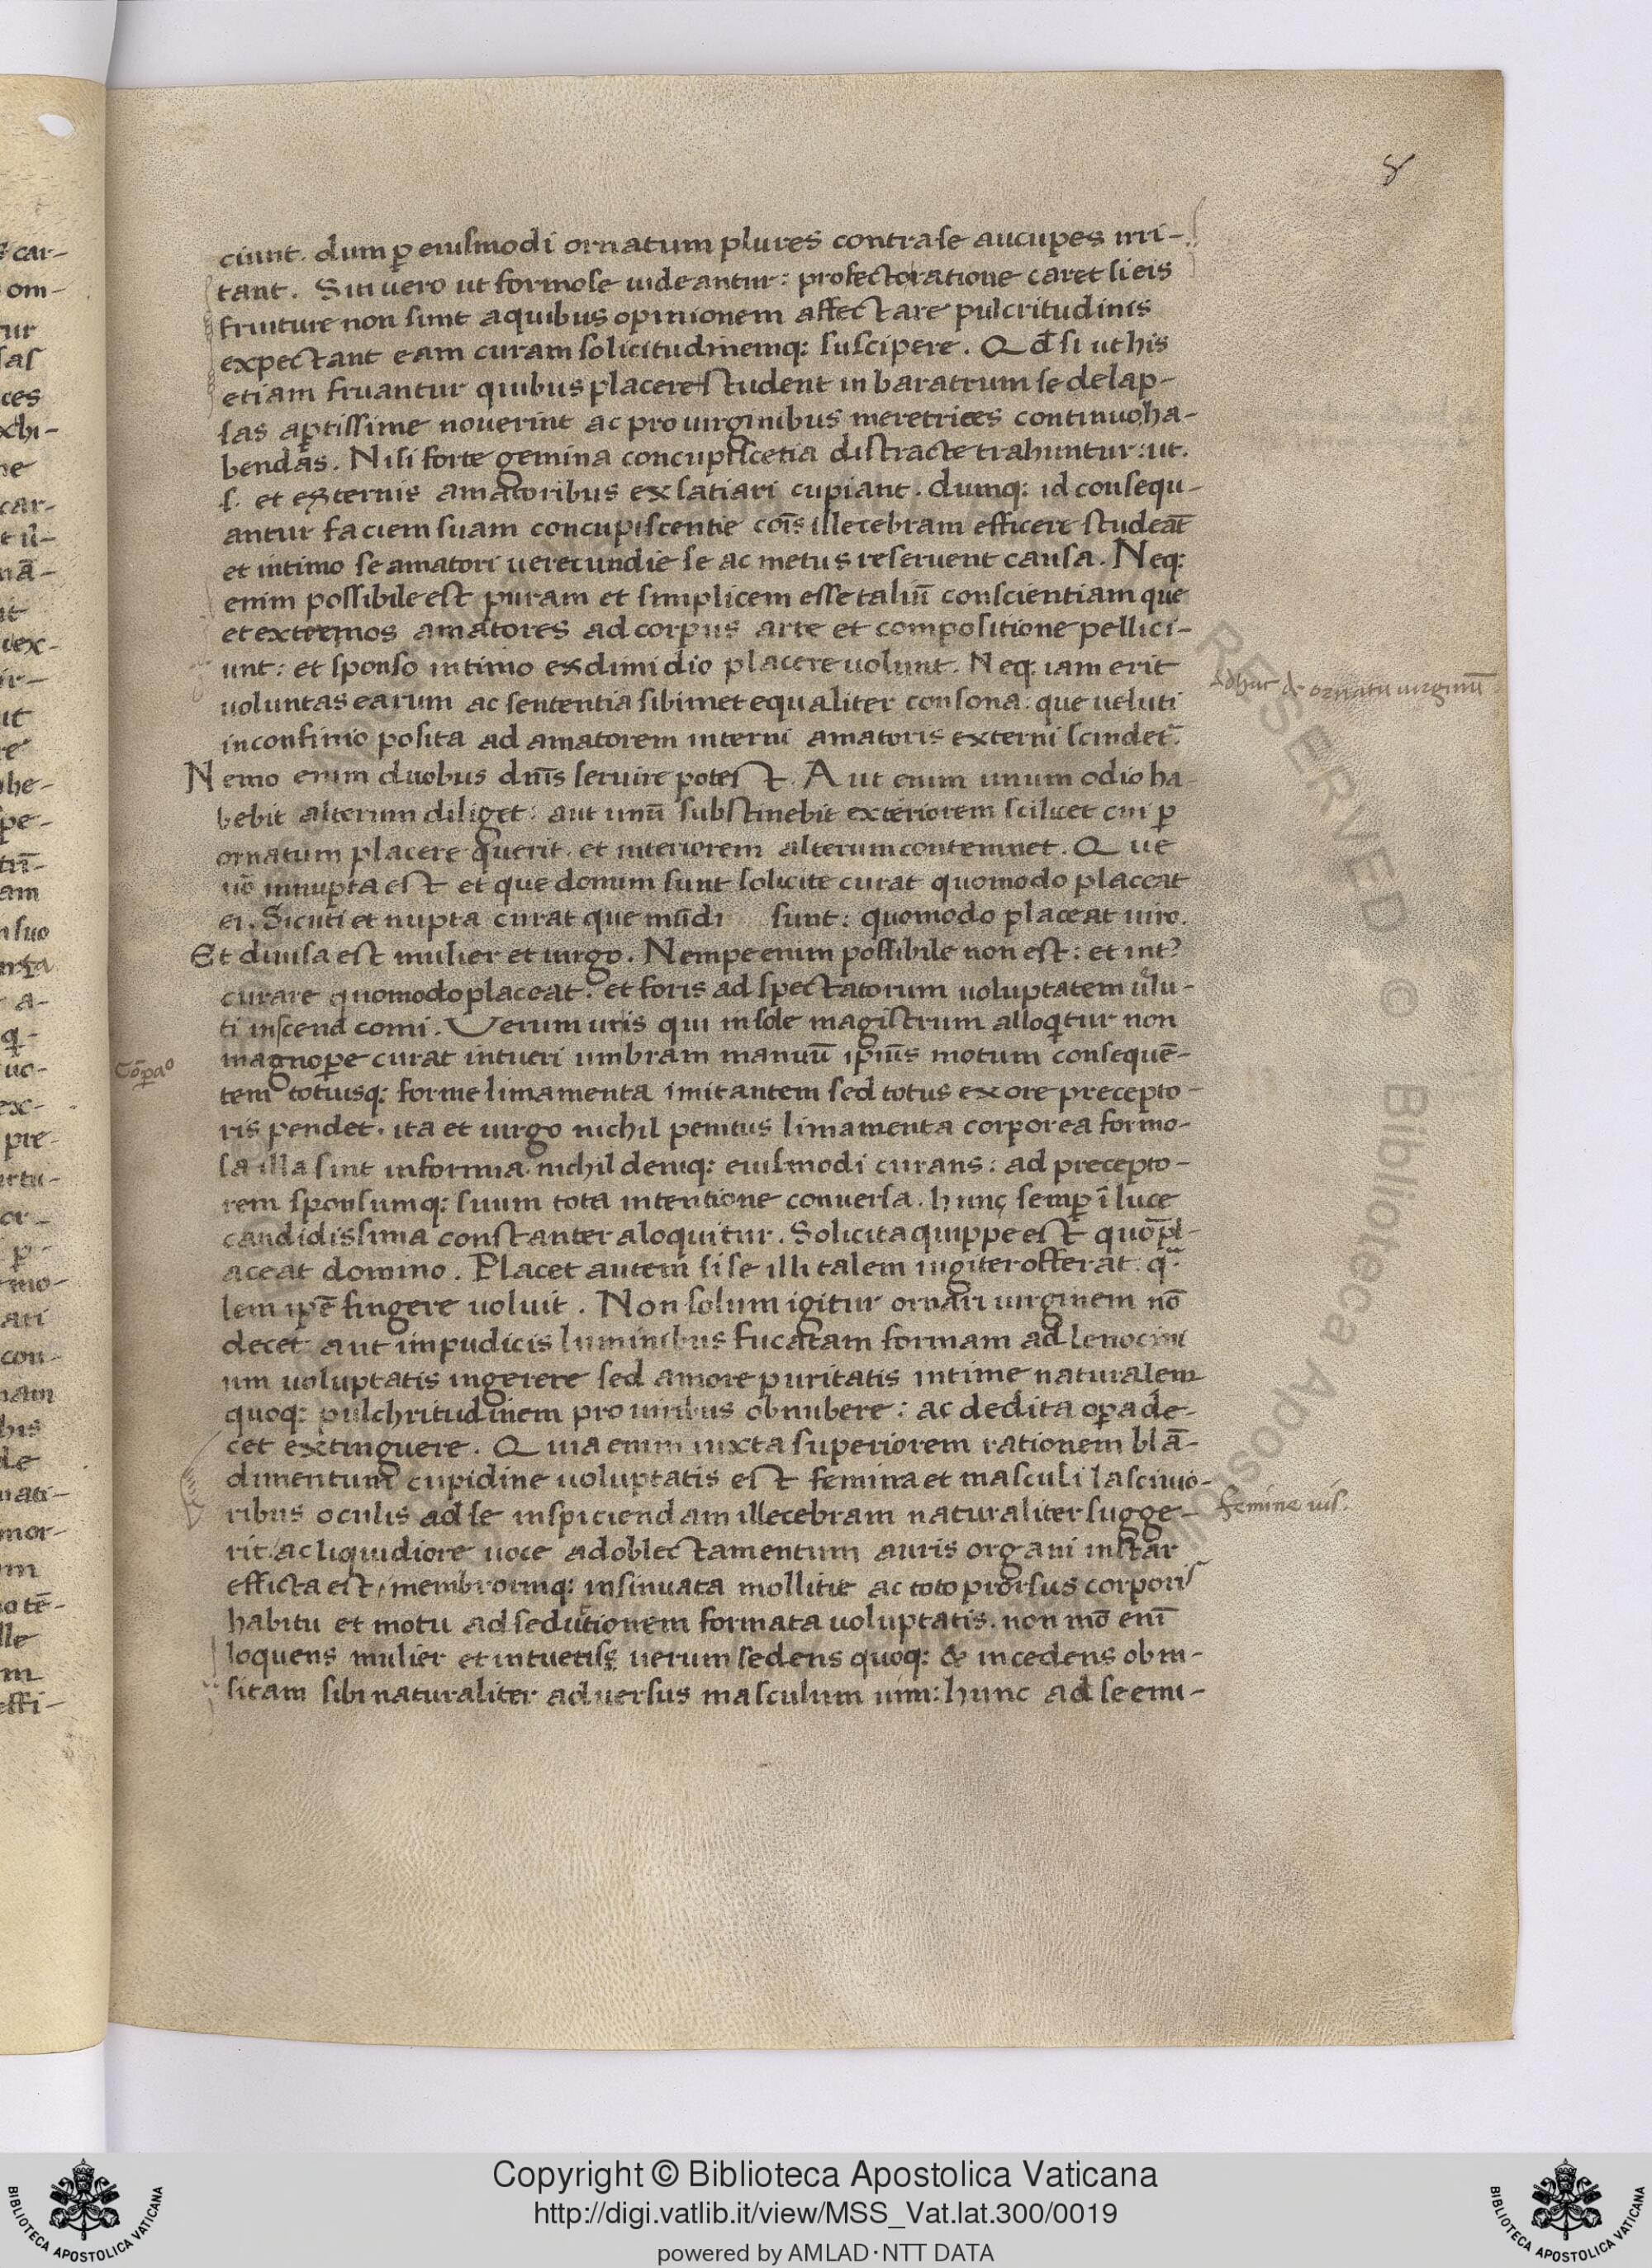 8
ciunt. dum ꝑ eiusmodi ornatum plures contra se aucupes irri-
tant. Sin uero ut formose uideantur: profecto ratione caret si eis
fruiture non sunt a quibus opinionem affectare pulcritudinis
expectant eam curam solicitudinemq: suscipere. Qd̄ si ut his
etiam fruantur quibus placere student in baratrum se delap-
sas aptissime nouerint ac pro uirginibus meretrices continuo ha-
bendas. Nisi forte gemina concupiscetia distracte trahuntur: ut.
s. et externis amatoribus exsatiari cupiant. dumq: id consequ-
antur faciem suam concupiscentie cōis illecebram efficere studeāt
et intimo se amatori uerecundie se ac metus reseruent causa. Neq:
enim possibile est puram et simplicem esse taliū conscientiam que
et extremos amatores ad corpus arte et compositione pellici-
unt: et sponso intimo ex dimidio placere uolunt. Neq: iam erit
uoluntas earum ac sententia sibimet equaliter consona: que ueluti
in confinio posita ad amatorem interni amatoris externi scindet᷑.
Nemo enim duobus dn̄is seruire potest. Aut enim unum odio ha-
bebit alterum diliget: aut unū substinebit exteriorem scilicet cui ꝑ
ornatum placere querit. et interiorem alterum contemnet. Que
uō innupta est et que domini sunt solicite curat quomodo placeat
ei. Sicuti et nupta curat que mūdi sunt: quomodo placeat uiro.
Et diuisa est mulier et uirgo. Nempe enim possibile non est: et int᷑
curare quomodo placeat. et foris ad spectatorum uoluptatem uelu-
ti in scend comi. Verum uti is qui in sole magistrum alloq̄tur non
magnoꝑe curat intueri umbram manuū ipīus motum consequē-
tem totiusq: forme limamenta imitantem sed totus ex ore precepto-
ris pendet. ita et uirgo nichil penitus limamenta corporea formo-
sa illa sint informia nichil deniq: eiusmodi curans: ad precepto-
rem sponsumq: suum tota intentione conuersa. hunc semꝑ ī luce
candidissima constanter aloquitur. Solicita quippe est quō pl-
aceat domino. Placet autem si se illi talem iugiter offerat. qa-
lem ipē fingere uoluit. Non solum igitur ornari uirginem nō
decet aut impudicis luminibus fucatam formam ad lenocini
um uoluptatis ingerere sed amore puritatis intime naturalem
quoq: pulchritudinem pro uiribus obnubere: ac dedita oꝑa de-
cet extinguere. Quia enim iuxta superiorem rationem blā-
dimentum cupidine uoluptatis est femina et masculi lasciuio-
ribus oculis ad se inspiciendam illecebram naturaliter sugge-
rit. ac liquidiore uoce ad oblectamentum auris organi instar
efficta est, membrorumq: insinuata mollitie ac toto prorsus corporis
habitu et motu ad sedutionem formata uoluptatis. non mō enī
loquens mulier et intuetis uerum sedens quoq: & incedens obni-
sitam sibi naturaliter aduersus masculum uim: hunc ad se emi-
Adhuc de ornatu uirginū
Cōꝑao
femine uis.
RESERVED © Biblioteca Apostolica
Copyright © Biblioteca Apostolica Vaticana
http://digi.vatlib.it/view/MSS_Vat.lat.300/0019
powered by AMLAD·NTT DATA
BIBLIOTECA APOSTOLICA VATICANA
BIBLIOTECA APOSTOLICA VATICANA